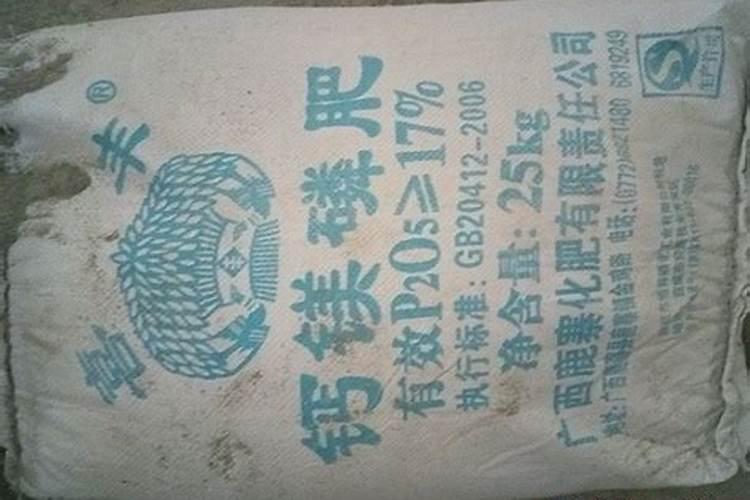 喜丰®
钙镁磷肥
有效P2O5≥17%
执行标准:GB20412-2006
净含量:25kg
广西鹿寨化肥有限责任公司
地址:广西 电话:(0772) 6819249
生产许可